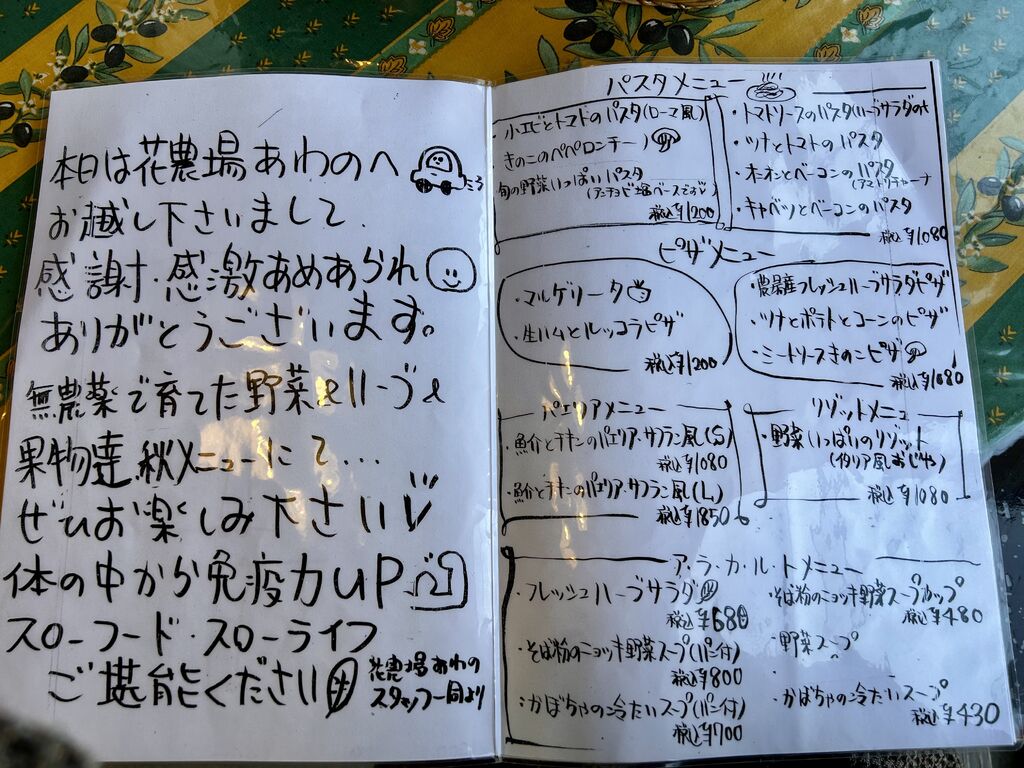 本日は花農場あわのへ
お越し下さいまして、
感謝・感激あめあられ
ありがとうございます。
無農薬で育てた野菜&ハーブ&
果物達、秋メニューにて...
ぜひお楽しみ下さい
体の中から免疫力UP
スローフード・スローライフ
ご堪能ください
花農場あわの
スタッフ一同より
パスタメニュー
・小エビとトマトのパスタ(ローマ風)
きのこのペペロンチーノ
旬の野菜いっぱいパスタ
(アンチョビ塩ベースです)
税込¥1200
・トマトソースのパスタ(ハーブサラダのせ
・ツナとトマトのパスタ
・オニオンとベーコンのパスタ
(アマトリチャーナ
・キャベツとベーコンのパスタ
税込¥1080
ピザメニュー
・マルゲリータ
・生ハムとルッコラピザ
税込¥1200
・農場産フレッシュハーブサラダピザ
・ツナとポテトとコーンのピザ
・ミートソースきのこピザ
税込¥1080
パエリアメニュー
・魚介とチキンのパエリア・サフラン風(S)
税込¥1080
・魚介とチキンのパエリア・サフラン風(L)
税込¥1850
リゾットメニュー
・野菜いっぱいのリゾット
(イタリア風おじや)
税込¥1080
ア・ラ・カ・ル・トメニュー
・フレッシュハーブサラダ
税込¥680
・そば粉のニョッキ野菜スープ(パン付)
税込¥800
・かぼちゃの冷たいスープ(パン付)
税込¥700
・そば粉のニョッキ野菜スープカップ
税込¥480
・野菜スープ
・かぼちゃの冷たいスープ
税込¥430